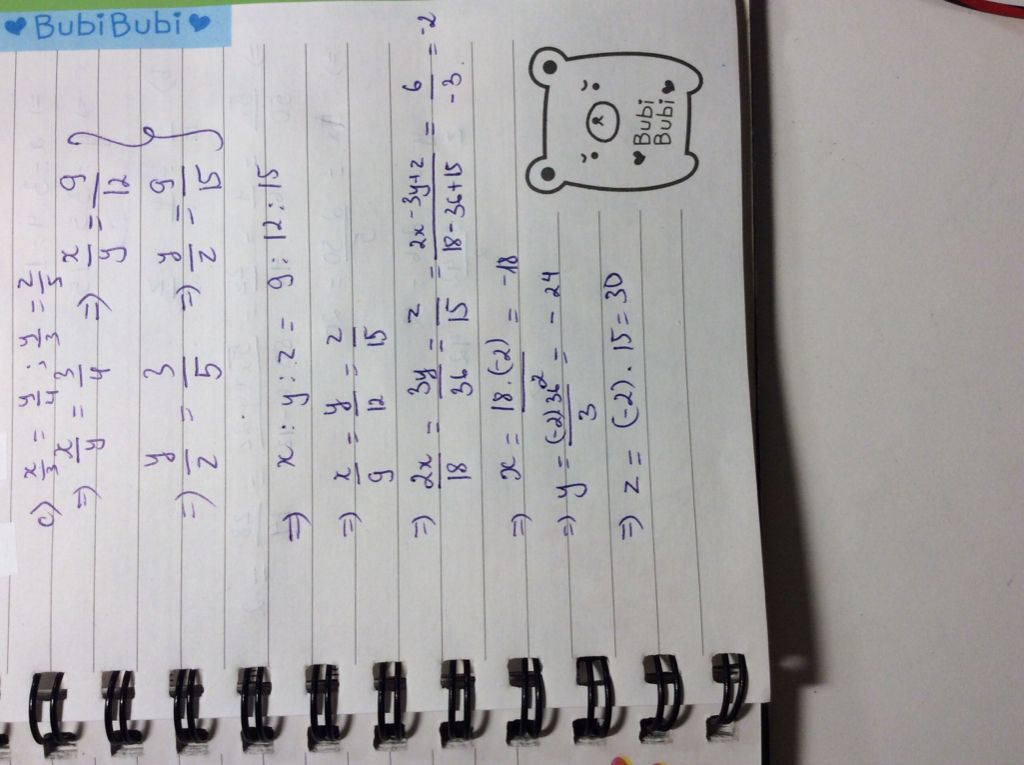 ♥ BubiBubi ♥
c) x/3 = y/4 ; y/3 = z/5
=) x/y = 3/4 =) x/y = 9/12
=) y/z = 3/5 =) y/z = 9/15
=) x : y : z = 9 : 12 : 15
=) x/9 = y/12 = z/15
=) 2x/18 = 3y/36 = z/15 = 2x-3y+z/18-36+15 = 6/-3 = -2
=) x = 18.(-2) = -18
=) y = (-2)36/3 = -24
=) z = (-2).15 = 30
♥ Bubi
Bubi ♥